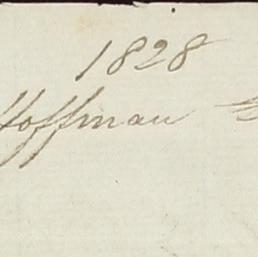 1828
Hoffman